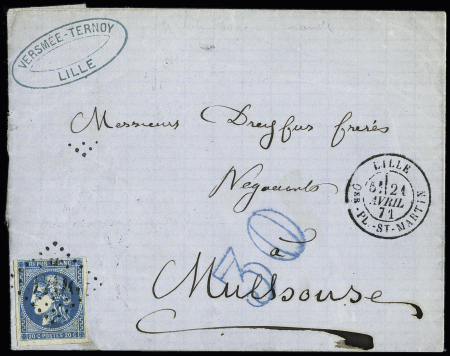 VERSMÉE-TERNOY
LILLE
Messieurs Dreyfus frères
Negociants
à
Mulhouse
30
LILLE
21
AVRIL
71
PL.-ST-MARTIN
REPUB. FRANC.
20 C POSTES 20 C